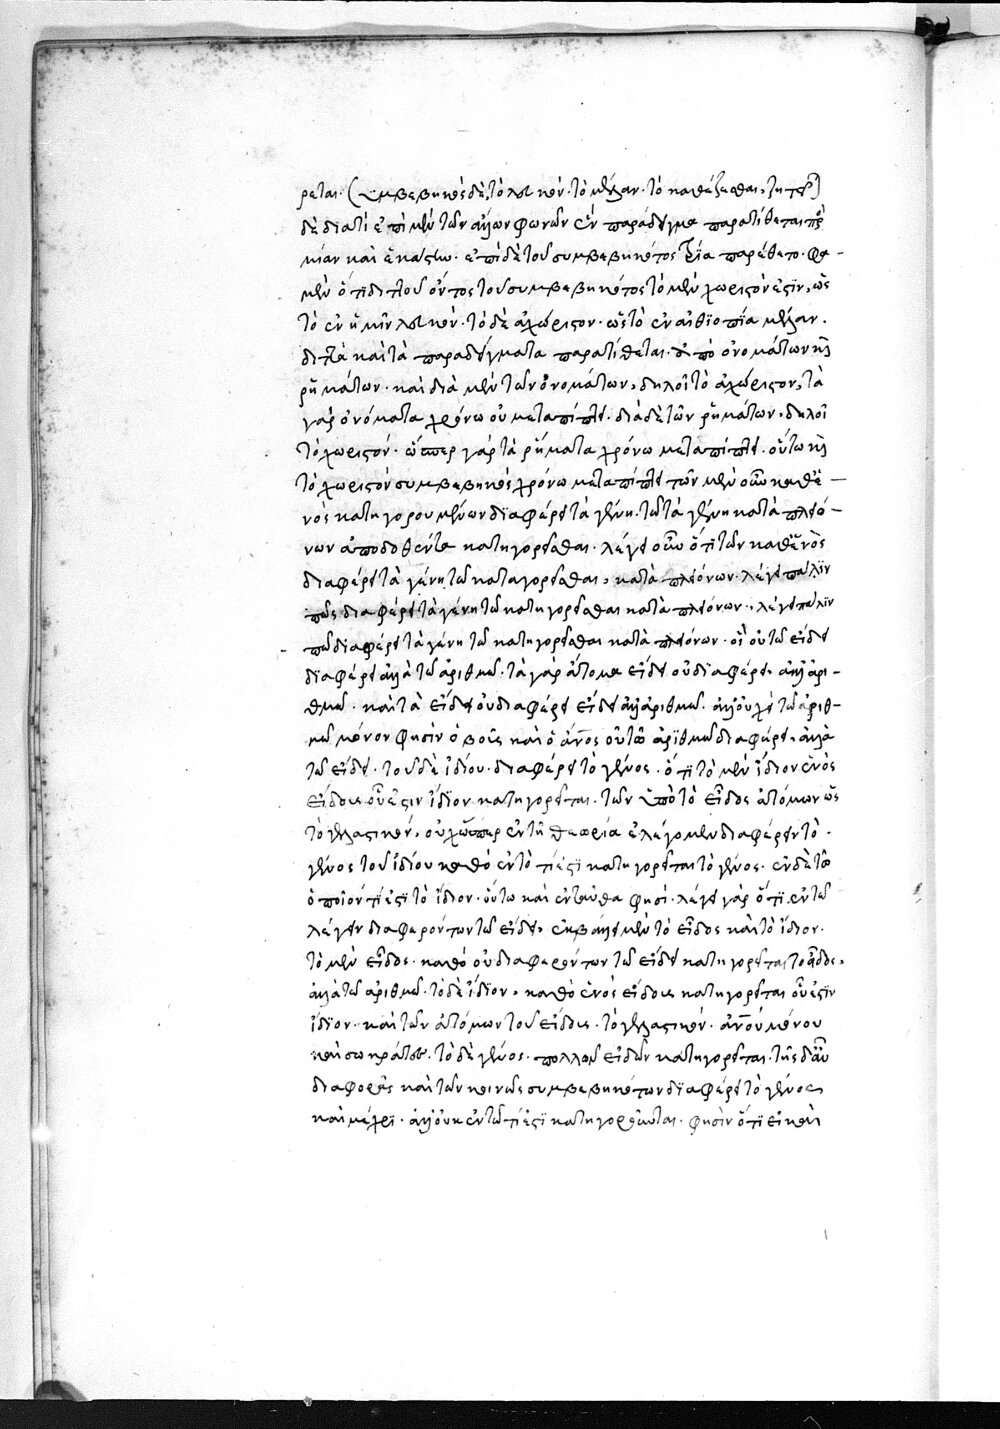 ρεται. (συμβεβηκὸς δὲ, τὸ λευκόν. τὸ μέλαν. τὸ καθέζεσθαι, ζητ)
δὲ διατί ἐπὶ μὲν τῶν ἄλλων φωνῶν ἓν παράδειγμα παρατίθεται πρὸς
μίαν καὶ ἑκάστω. ἐπὶ δὲ τοῦ συμβεβηκότος τρία παρέθετο. φα-
μὲν ὅτι διττοῦ ὄντος τοῦ συμβεβηκότος τὸ μὲν χωριστόν ἐστιν, ὡς
τὸ ἐν ἡμῖν λευκόν. τὸ δὲ ἀχώριστον. ὡς τὸ ἐν αἰθίοπία μέλαν.
διττὰ καὶ τὰ παραδείγματα παρατίθεται. ἀπὸ ὀνομάτων καὶ
ῥημάτων. καὶ διὰ μὲν τῶν ὀνομάτων, δηλοῖ τὸ ἀχώριστον, τὰ
γὰρ ὀνόματα χρόνω οὐ μεταπίπτει. διὰ δὲ τῶν ῥημάτων, δηλοῖ
τὸ χωριστόν. ὥσπερ γὰρ τὰ ῥήματα χρόνω μεταπίπτει. οὕτω καὶ
τὸ χωριστὸν συμβεβηκὸς χρόνω μεταπίπτει τῶν μὲν οὖν καθ' ἑ-
νὸς κατηγορουμένων διαφέρει τὰ γένη. τῶ τὰ γένη κατὰ πλειό-
νων ἀποδοθέντα κατηγορεῖσθαι. λέγει οὖν ὅτι τῶν καθ' ἑνὸς
διαφέρει τὰ γένη τῶ καταγορεῖσθαι, κατὰ πλειόνων. λέγει πάλιν
πῶς διαφέρει τὰ γένη τῶ κατηγορεῖσθαι κατὰ πλειόνων. λέγει πάλιν
πῶ διαφέρει τὰ γένη τῶ κατηγορεῖσθαι κατὰ πλειόνων. οἱ οὕτω εἴδει
διαφέρει ἀλλὰ τῶ ἀριθμῶ. τὰ γὰρ ἄτομα εἴδει οὐ διαφέρει. ἀλλ' ἀρι-
θμῶ. καὶ τὰ εἴδει οὐ διαφέρει εἴδει ἀλλ' ἀριθμῶ. ἀλλ' οὐχὶ τῶ ἀριθ-
μῶ μόνον φησὶν ὁ βοῦς καὶ ὁ ἄνος οὕτω ἀριθμῶ διαφέρει, ἀλλὰ
τῶ εἴδει. τοῦ δὲ ἰδίου. διαφέρει τὸ γένος. ὅτι τὸ μὲν ἴδιον ἑνὸς
εἴδους οὗ ἐστιν ἴδιον κατηγορεῖται. τῶν ὑπὸ τὸ εἶδος ἀτόμων ὡς
τὸ γελαστικόν. οὐχ ὥσπερ ἐν τῆ θεωρία ἐλέγομεν διαφέρειν τὸ.
γένος τοῦ ἰδίου καθὸ ἐν τὸ τί ἐστι κατηγορεῖται τὸ γένος. ἐν δὲ τῶ
ὁποῖόν τί ἐστι τὸ ἴδιον. οὕτω καὶ ἐνταῦθα φησί. λέγει γὰρ ὅτι ἐν τῶ
λέγειν διαφερόντων τῶ εἴδει, ἐκβάλλει μὲν τὸ εἶδος καὶ τὸ ἴδιον.
τὸ μὲν εἶδος. καθὸ οὐ διαφερόντων τῶ εἴδει κατηγορεῖται τὸ εἶδος,
ἀλλὰ τῶ ἀριθμῶ. τὸ δὲ ἴδιον, καθὸ ἑνὸς εἴδους κατηγορεῖται οὗ ἐστιν
ἴδιον. καὶ τῶν ἀτόμων τοῦ εἴδους. τὸ γελαστικόν. ἀνου μόνου
καὶ σωκράτους. τὸ δὲ γένος. πολλῶν εἰδῶν κατηγορεῖται. τῆς δ' αὖ
διαφορᾶς καὶ τῶν κοινῶς συμβεβηκότων διαφέρει τὸ γένος
καὶ μέχρι. ἀλλ' οὐκ ἐν τῶ τί ἐστι κατηγοροῦνται. φησὶν ὅτι εἰ καὶ